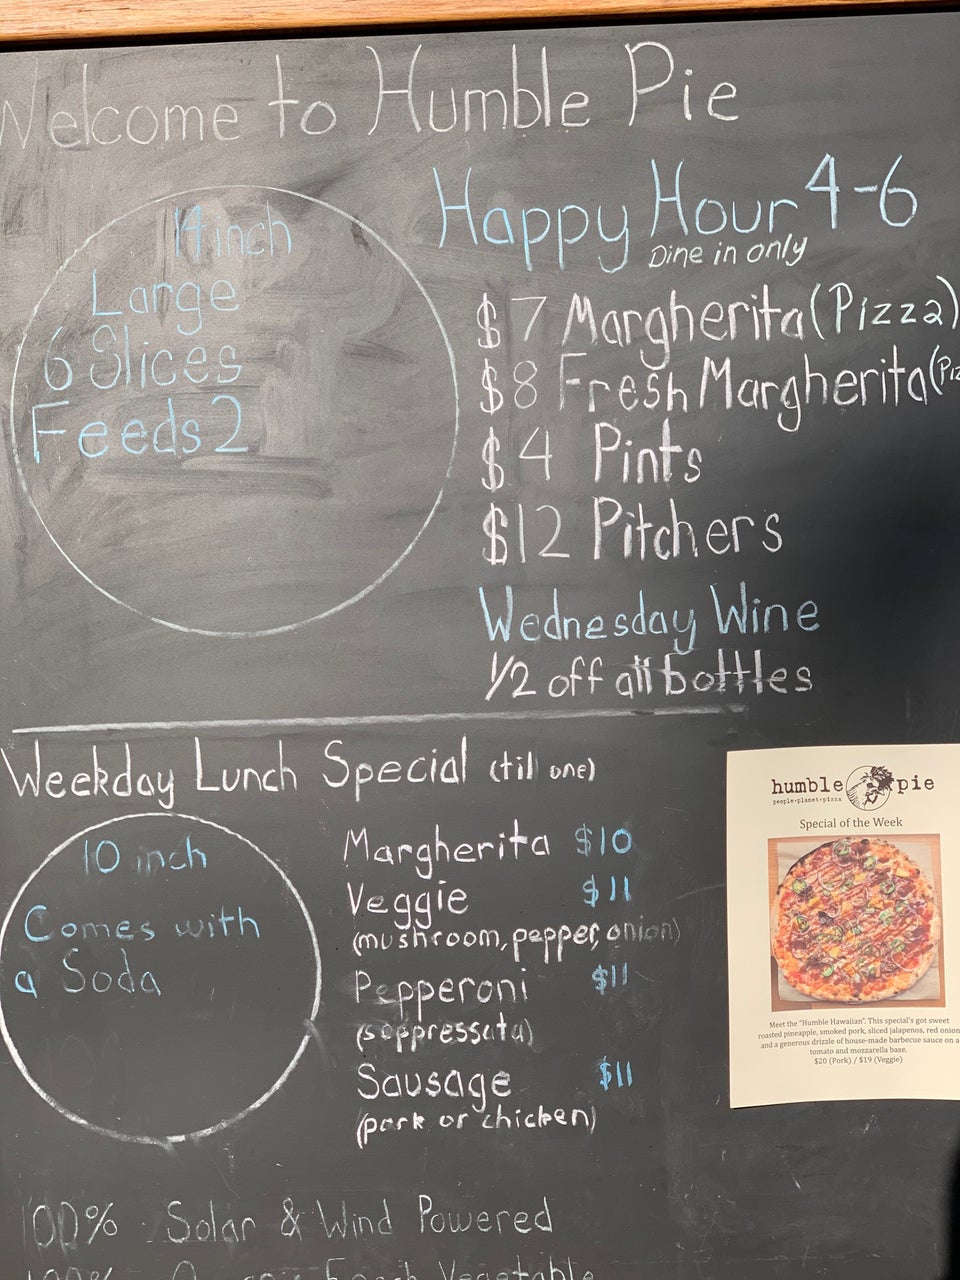 Welcome to Humble Pie
14 inch
Large
6 Slices
Feeds 2
Happy Hour 4-6
Dine in only
$7 Margherita (Pizza)
$8 Fresh Margherita (Piz
$4 Pints
$12 Pitchers
Wednesday Wine
1/2 off all bottles
Weekday Lunch Special (til one)
10 inch
Comes with
a Soda
Margherita $10
Veggie $11
(mushroom, pepper, onion)
Pepperoni $11
(soppressata)
Sausage $11
(pork or chicken)
humble pie
people·planet·pizza
Special of the Week
Meet the "Humble Hawaiian". This special's got sweet
roasted pineapple, smoked pork, sliced jalapenos, red onion
and a generous drizzle of house-made barbecue sauce on a
tomato and mozzarella base.
$20 (Pork) / $19 (Veggie)
100% Solar & Wind Powered
100% Fresh Vegetable